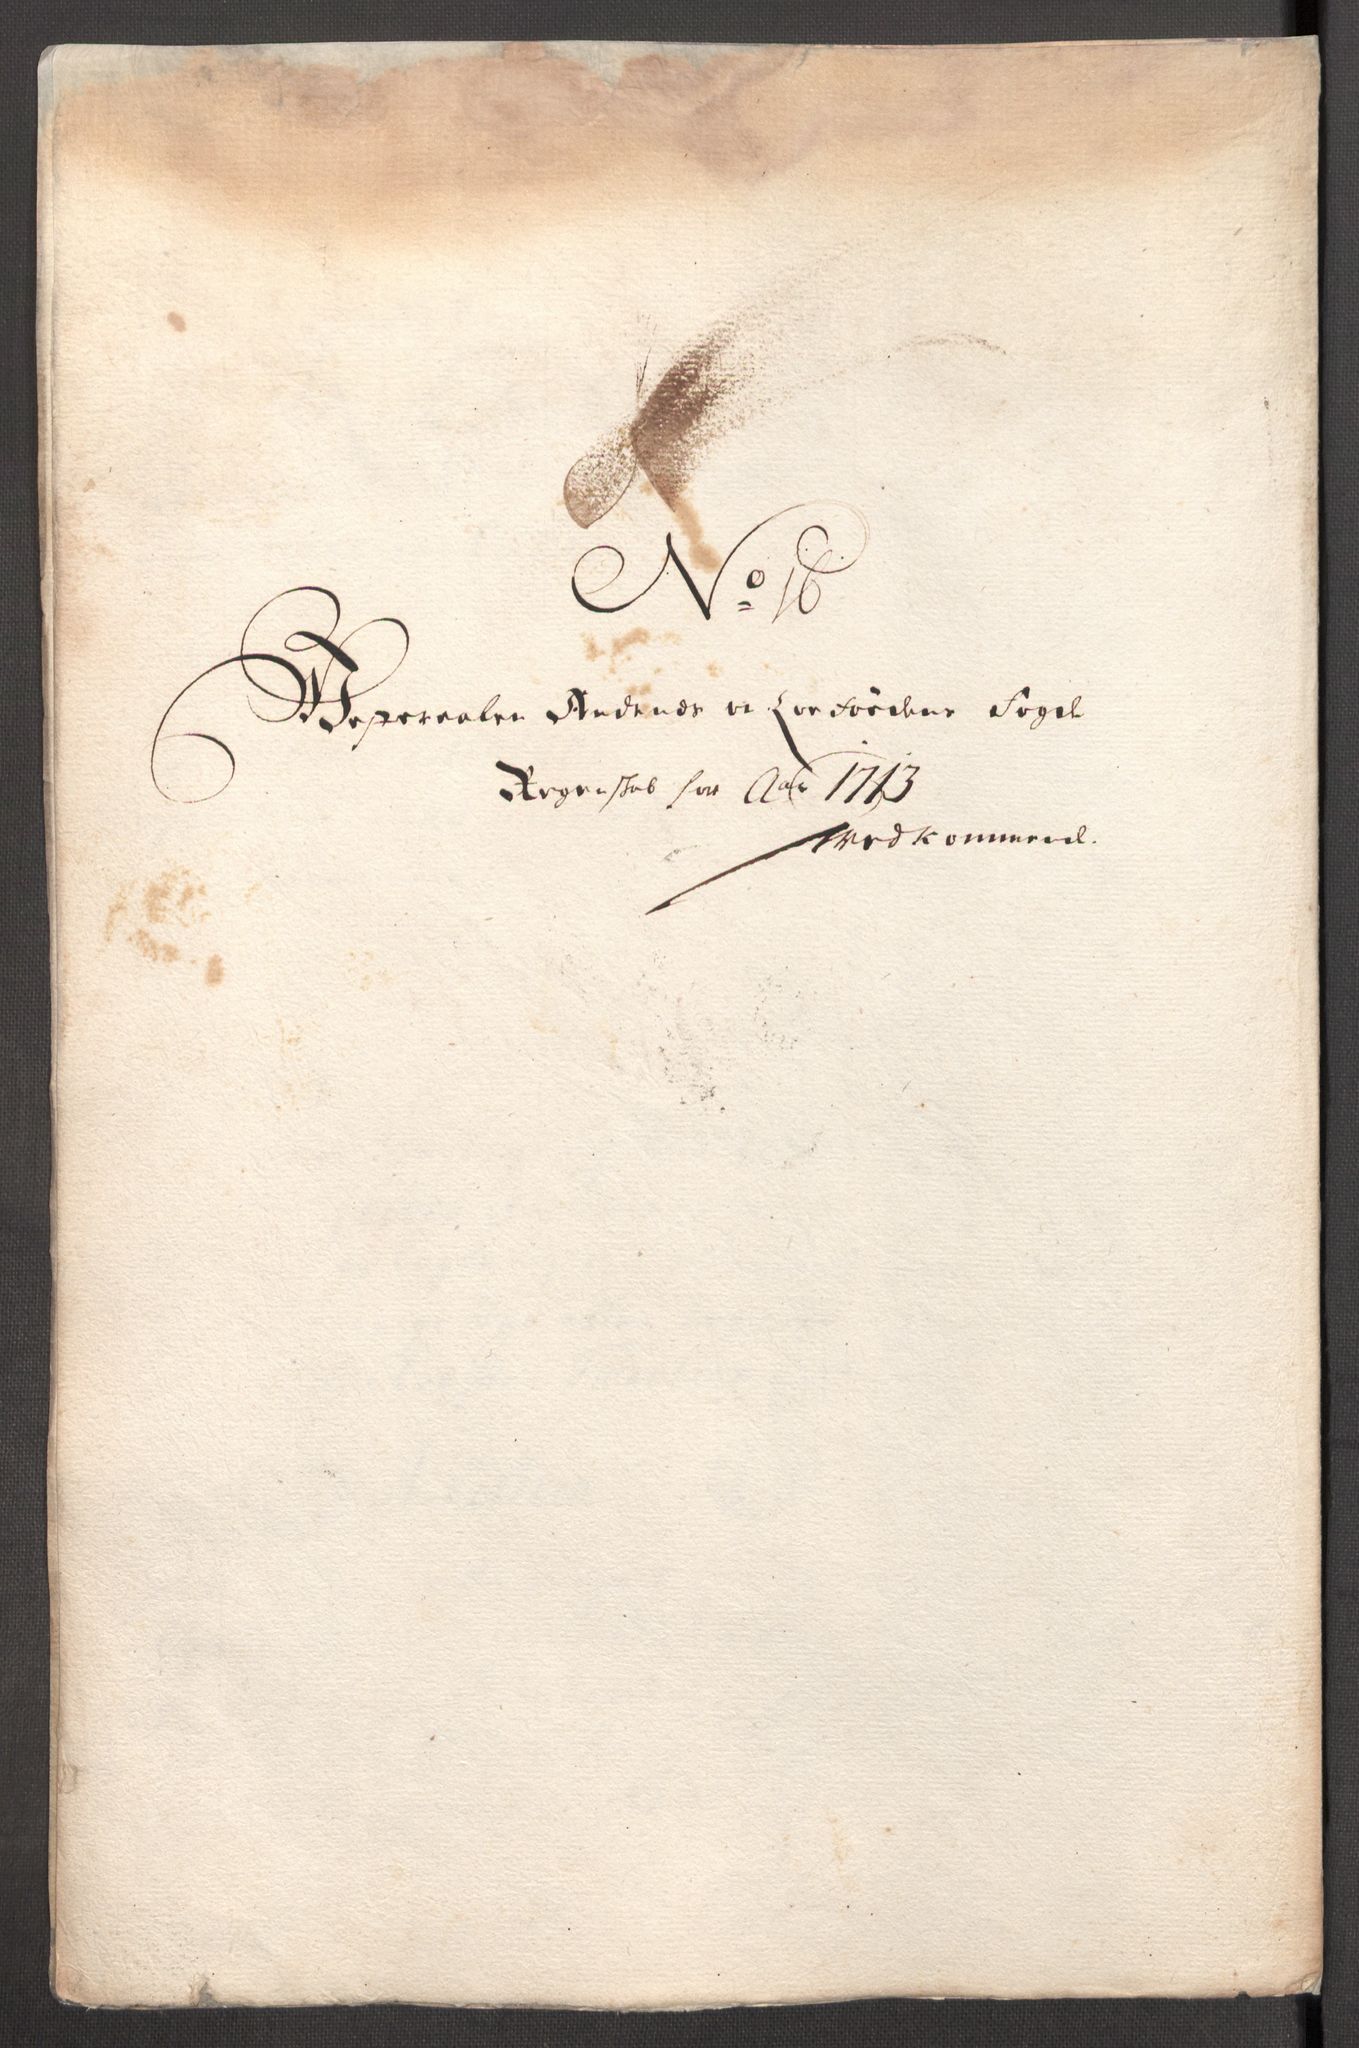 No 16
Wesperaalen Andenæs oc Loefoedens Fogd
Regenskab for Aar 1713
vedkommend.